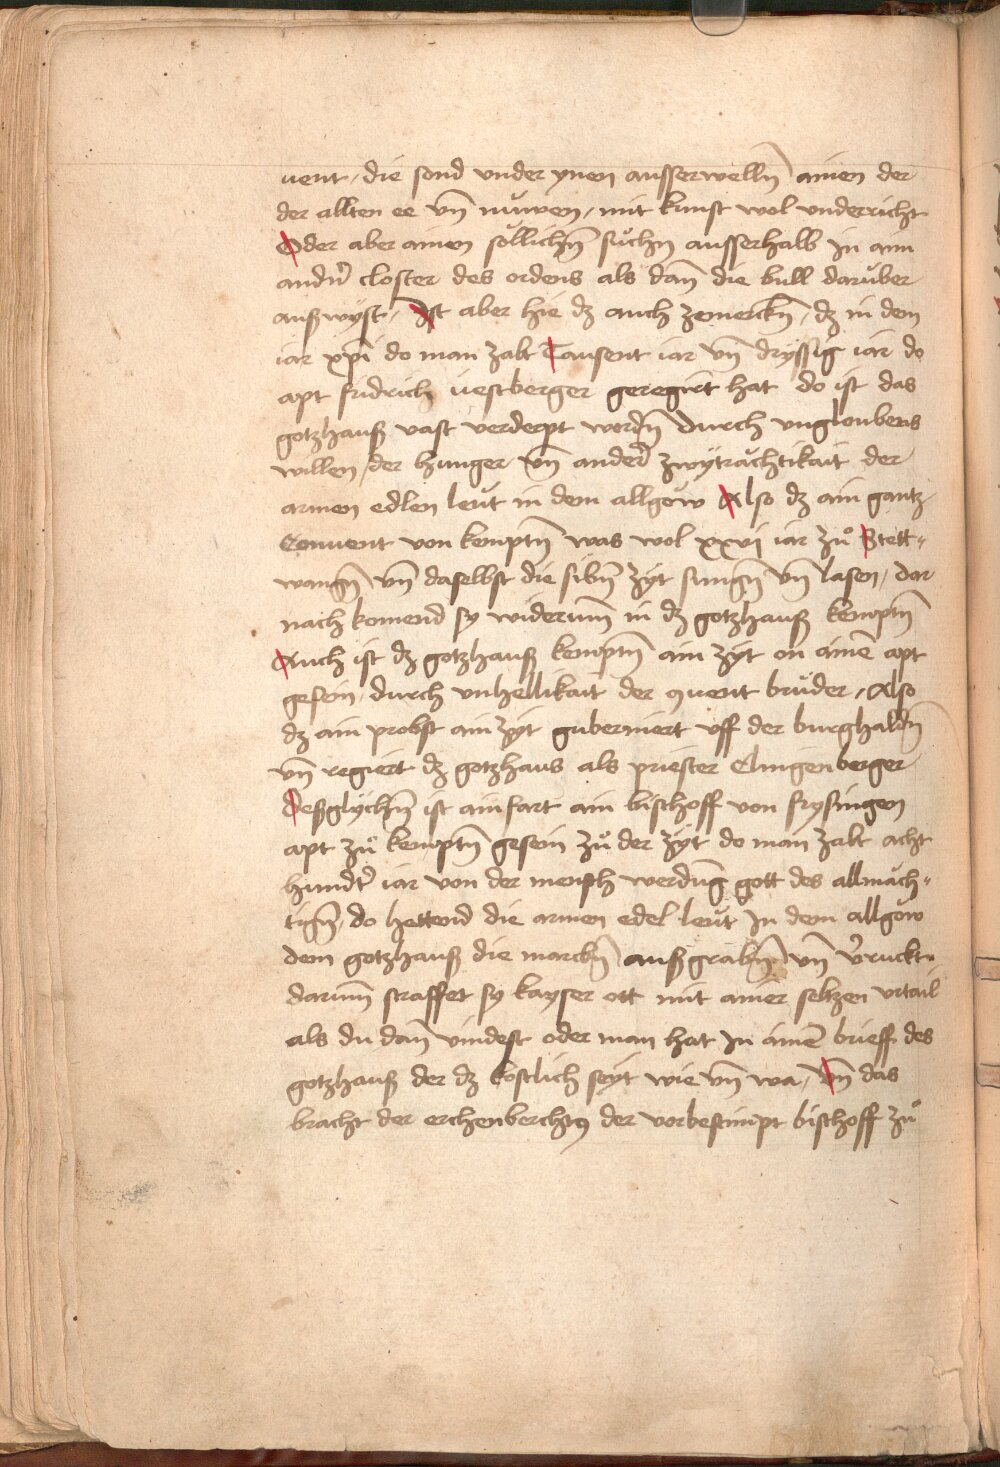 uent / die sond vnder ynen ausserwelln̄ ainen der
der allten ee vn̄ nuͤwen / mit kunst wol vnderricht
Oder aber ainen soͤllichn̄ suͦchn̄ ausserhalb in aim
andr̄ closter des ordens als dan̄ die bull daruͤber
außwyst / Ist aber hie dz auch zemerckn̄ / dz in dem
iar xp̄i do man zalt Tausent iar vn̄ dryssig iar do
apt fridrich uestberger geregirt hat do ist das
gotzhauß vast verderpt wordn̄ durch vngloubens
willen / der hunger vn̄ander̄ zwytraͤchtikait der
armen edlen leuͤt in dem allgoͤw Also dz ain gantz
Conuent von kemptn̄ was wol xxvj iar zuͦ Stett-
wangn̄ vn̄ daselbst die sibn̄ zyt sungn̄ vn̄ lasen / dar
nach komend sy widerum̄ in dz gotzhauß kemptn̄
Auch ist dz gotzhauß kemptn̄ ain zyt on ainē apt
gesein / durch vnhellikait der 9uent bruͤder / Also
dz ain probst ain zyt guberniert vff der burghaldn̄
vn̄ regiert dz gotzhaus als priester Clingenberger
Deßglychn̄ ist ain fart ain bischoff von frysingen
apt zuͦ kemptn̄ gesein zuͦ der zyt do man zalt acht
hundr̄t iar von der mensch werdunḡ gott des allmaͤch-
tign̄ / do hettend die armen edel leuͤt In dem allgoͤw
dem gotzhauß die marckn̄ außgrabn̄ vn̄ v̄ruckt
darum̄ straffet sy kayser ott mit ainer seltzen vrtail
als du dan̄ vindest oder man hat In ainē brieff des
gotzhauß der dz kostlich seyt wie vn̄ wa / vn̄ das
bracht der erchenberchtꝰ der vorbestimpt bischoff zuͦ